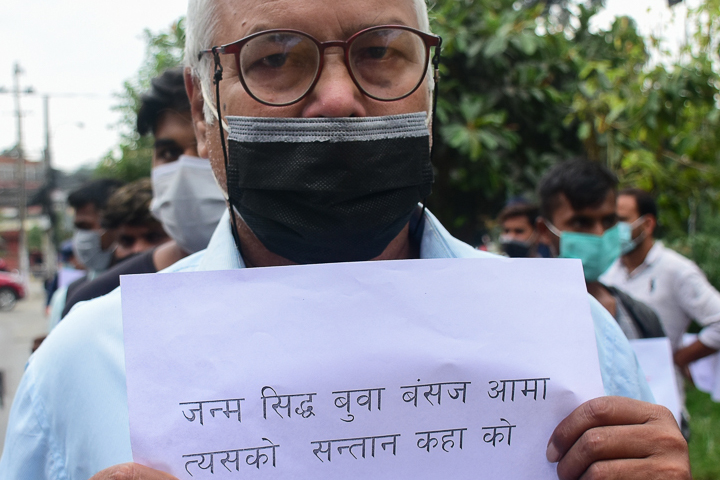 जन्म सिद्ध बुवा बंसज आमा
त्यसको सन्तान कहा को